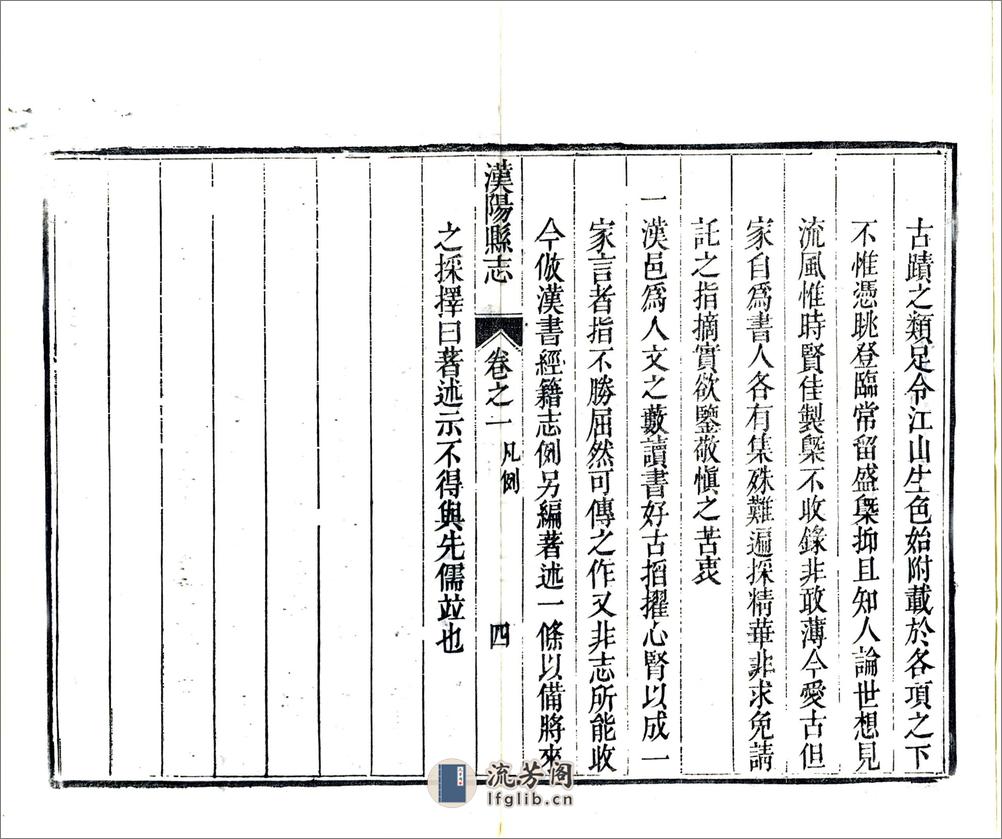 古蹟之類足令江山生色始附載於各項之下
不惟憑眺登臨常留盛槩抑且知人論世想見
流風惟時賢佳製槩不收錄非敢薄今愛古但
家自爲書人各有集殊難遍採精華非求免請
託之指摘實欲鑒敬愼之苦衷
一漢邑爲人文之藪讀書好古搯擢心腎以成一
家言者指不勝屈然可傳之作又非志所能收
今倣漢書經籍志例另編著述一條以備將來
漢陽縣志 卷之一 凡例 四
之採擇曰著述示不得與先儒竝也
流芳阁
lfglib.cn